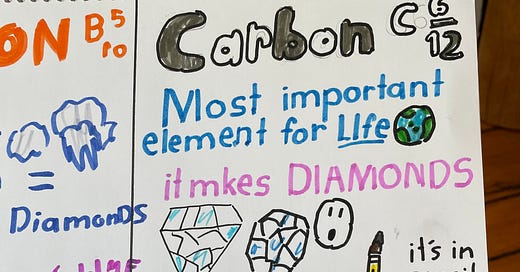 ON B 5
10
=
DiamonDS
Carbon C 6
12
Most important
element for LIfe
it mkes DIAMONDS
it's in